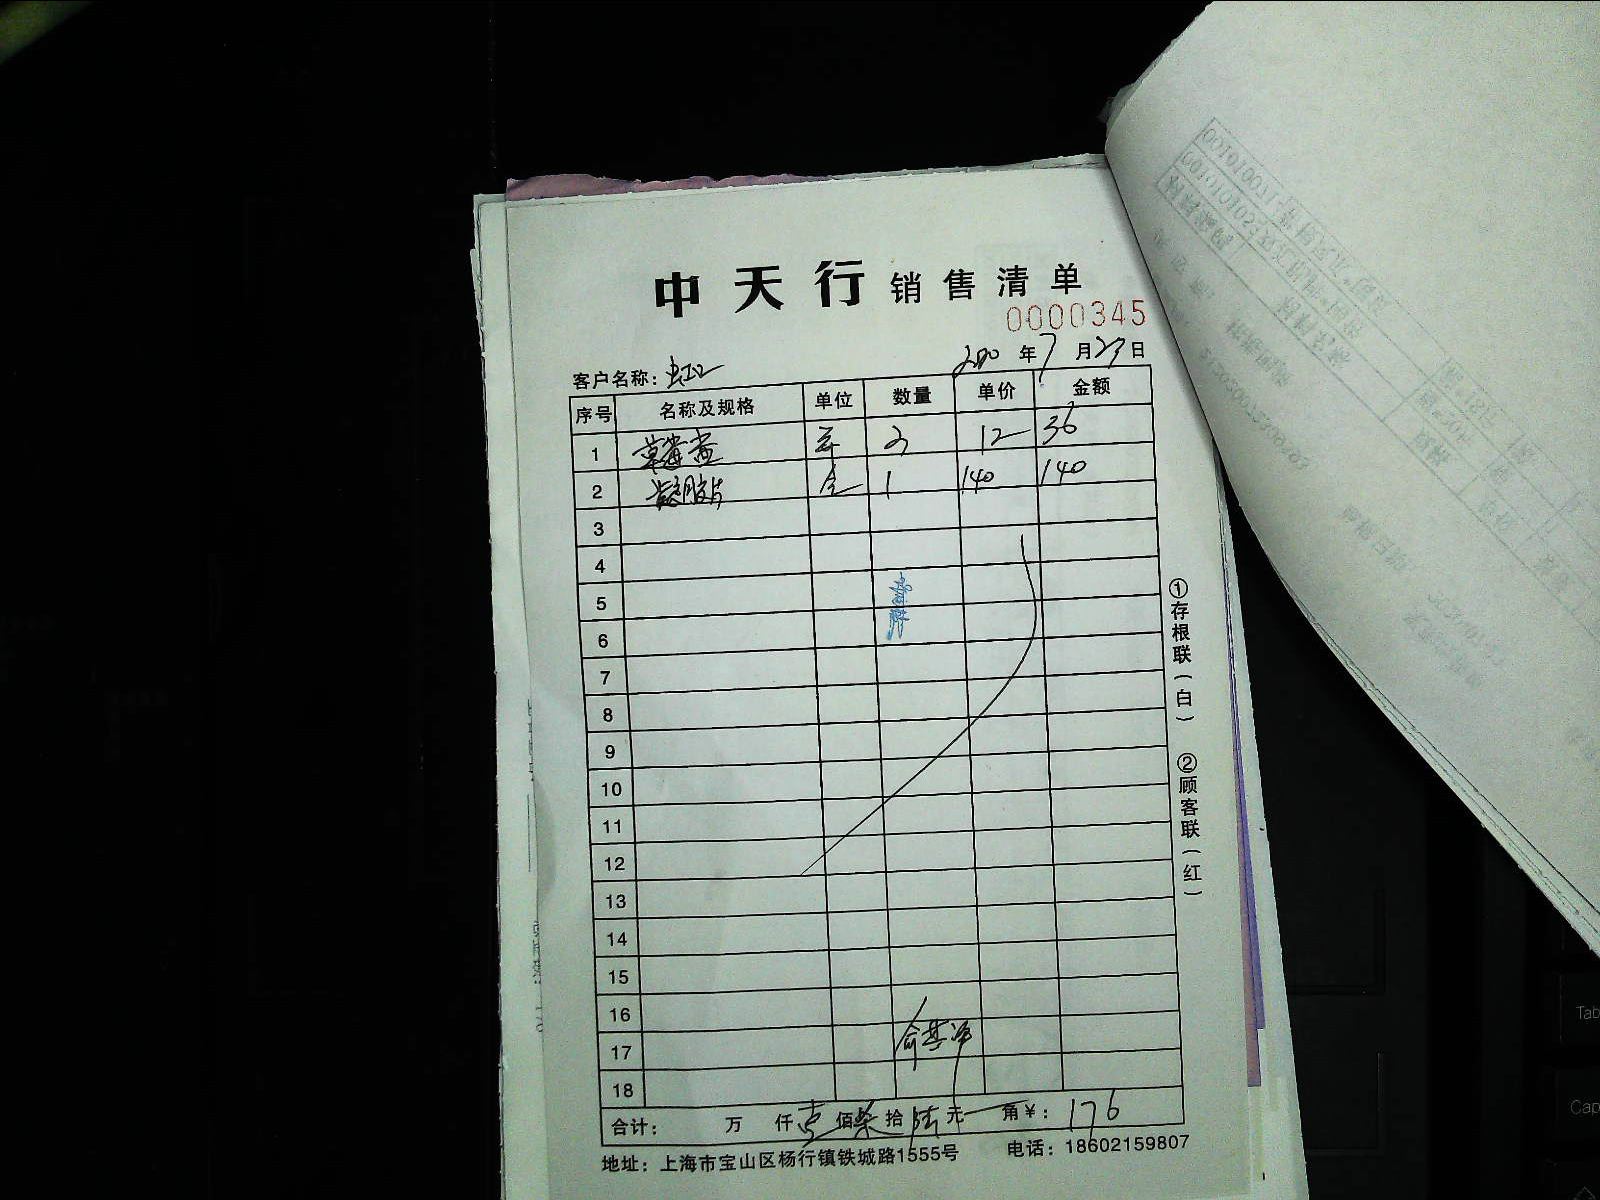 中天行 销售清单
0000345
年7月29日
客户名称：虹江
序号 名称及规格 单位 数量 单价 金额
1 草莓酱 12 36
2 鱼胶片 1 140 140
3
4
5
6
7
8
9
10
11
12
13
14
15
16
17
18
合计： 万 仟壹佰柒拾陆元 角￥：176
地址：上海市宝山区杨行镇铁城路1555号 电话：18602159807
①存根联（白） ②顾客联（红）
Tab
Cap